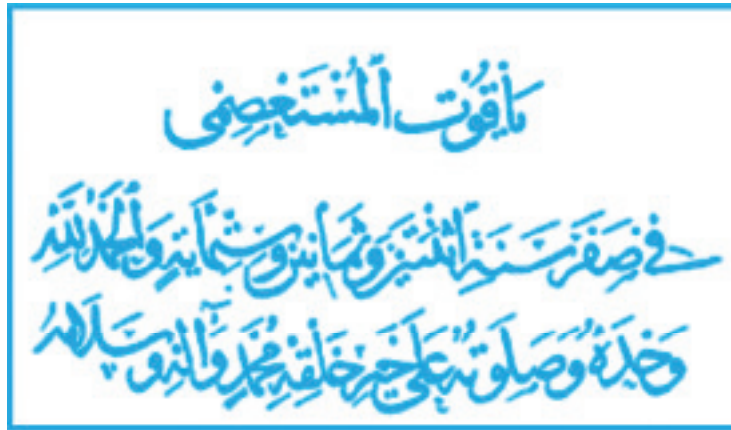 ياقوت المستعصمي
في صفر سنة اثنتين وثمانين وستماية والحمد لله
وحده وصلوته على خير خلقه محمد وآله وسلامه